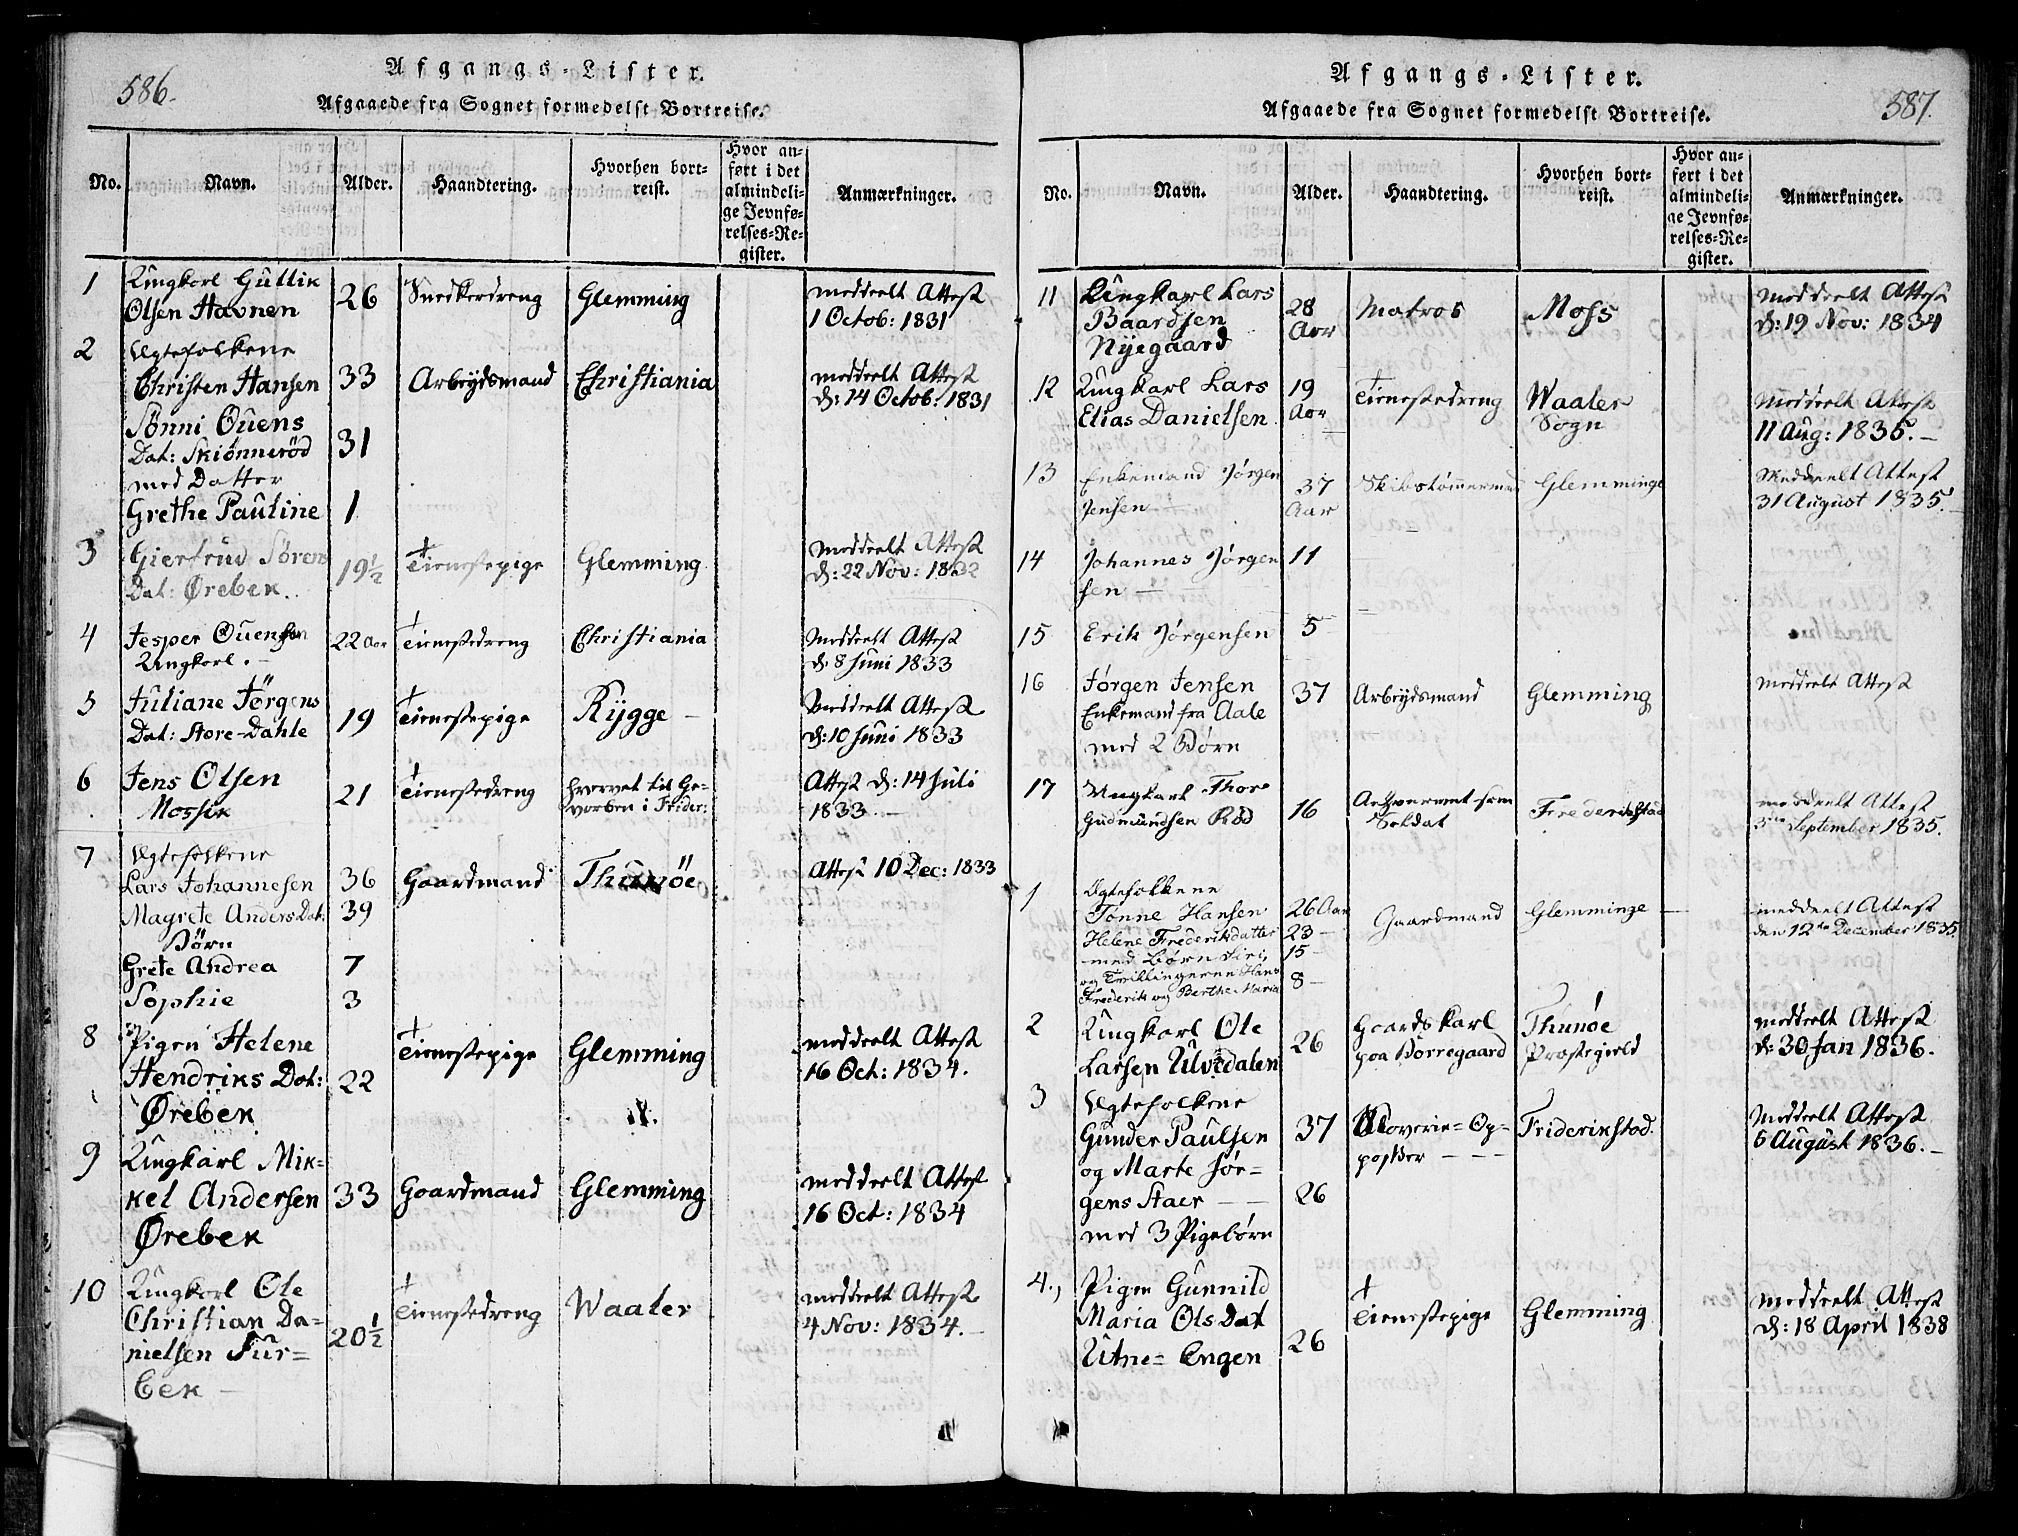 586.
Afgangs-Lister.
Afgaaede fra Sognet formedelst Bortreise.
No. Navn. Alder. Haandtering. Hvorhen bortreist. Hvor anført i det almindelige Jevnførelses-Register. Anmærkninger.
1 Ungkarl Guttik 26 Snedkerdreng Glemming meddeelt Attest
Olsen Havnen 1 Octob: 1831
2 Ægtefolkene
Christen Hansen 33 Arbeydsmand Christiania meddeelt Attest
d: 14 Octob: 1831
Sønni Ouens
Dat: Skiønnerød 31
med Datter
Grethe Pauline 1
3 Giertrud Sørens 19½ Tienestepige Glemming Meddeelt Attest
Dat: Ørebek. d: 22 Nov: 1832
4 Jesper Ouensen 22 Aar Tienestedreng Christiania Meddeelt Attest
Ungkarl. d. 8 Juni 1833
5 Juliane Jörgens 19 Tienestepige Rygge Meddeelt Attest
Dat: Store-Dahle d: 10 Juni 1833
6 Jens Olsen 21 Tienestedreng hvervet til Ge- Attest d: 14 Juli
Mossik vorben i Frider: 1833
7 Ægtefolkene
Lars Johannesen 36 Gaardmand Thunöe Attest 10 Dec: 1833
Magrete Anders Dat: 39
Børn
Grete Andrea 7
Sophie 3
8 Pigen Helene Tienestepige Glemming meddeelt Attest
Hendriks Dat: 22 16 Oct: 1834.
Ørebek
9 Ungkarl Mik-
kel Andersen 33 Gaardmand Glemming meddeelt Attest
Ørebek 16 Oct: 1834
10 Ungkarl Ole Tienestedreng Waaler meddeelt Attest
Christian Da- 20½ 4 Nov: 1834.
nielsen Fur-
bek
587.
Afgangs-Lister.
Afgaaede fra Sognet formedelst Bortreise.
No. Navn. Alder. Haandtering. Hvorhen bortreist. Hvor anført i det almindelige Jevnførelses-Register. Anmærkninger.
11 Ungkarl Lars 28 Matros Moss Meddeelt Attest
Baardsen Aar d: 19 Nov: 1834
Nyegaard
12 Ungkarl Lars 19 Tienestedreng Waaler Meddeelt Attest
Elias Danielsen Aar Sogn 11 Aug: 1835.
13 Enkemand Jørgen 37 Skibstømmermand Glemminge Meddeelt Attest
Jensen Aar 31 August 1835.
14 Johannes Jörgen 11
sen
15 Erik Jörgensen 5
16 Jörgen Jensen 37 Arbeydsmand Glemming meddelt Attest
Enkemand fra Aale
med 2 Børn
17 Ungkarl Thore 16 Frederikstad meddeelt Attest
Gudmundsen Röd Soldat September 1835.
1 Ægtefolkene
Tønne Hansen 26 Aar Gaardmand Glemminge meddeelt Attest
Helene Frederiksdatter 23 den 12te December 1835
med Børn 15
og Tvillingerne Hans 8
Frederik og Berthe Maria
2 Ungkarl Ole 26 Gaardskarl Thunöe meddeelt Attest
Larsen Ulvedalen paa Borregaard Præstegield d: 30 Jan 1836.
3 Ægtefolkene
Gunder Paulsen 37 Op- Friderikstad. Meddeelt Attest
og Marte Jör- passer 6 August 1836.
gens Staer 26
med 3 Pigebørn
4., Pigen Gunnild Tienestepige Glemming Meddeelt Attest
Maria Ols Dat 26 d: 18 April 1838
Utne-Engen